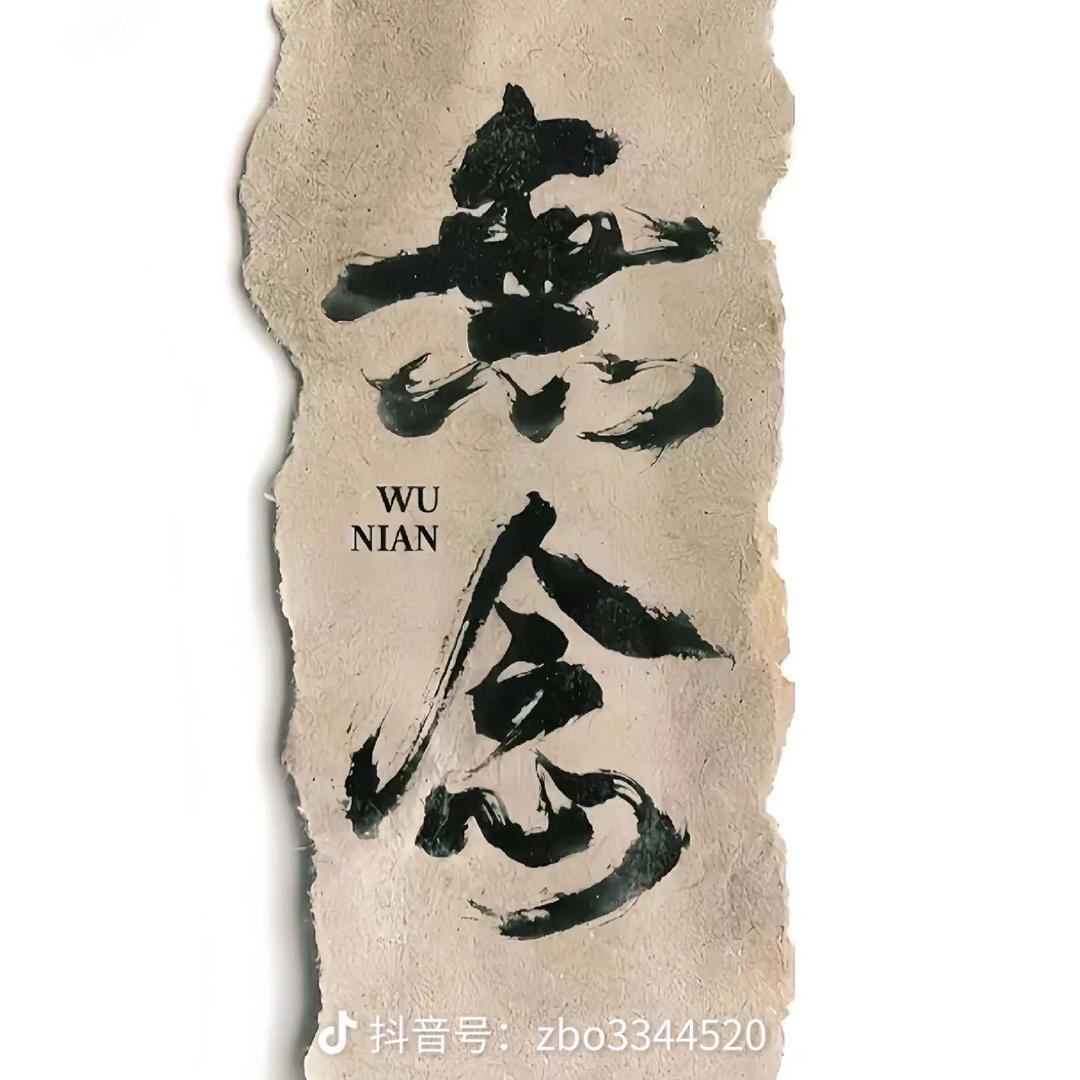 無
念
WU
NIAN
抖音号：zbo3344520